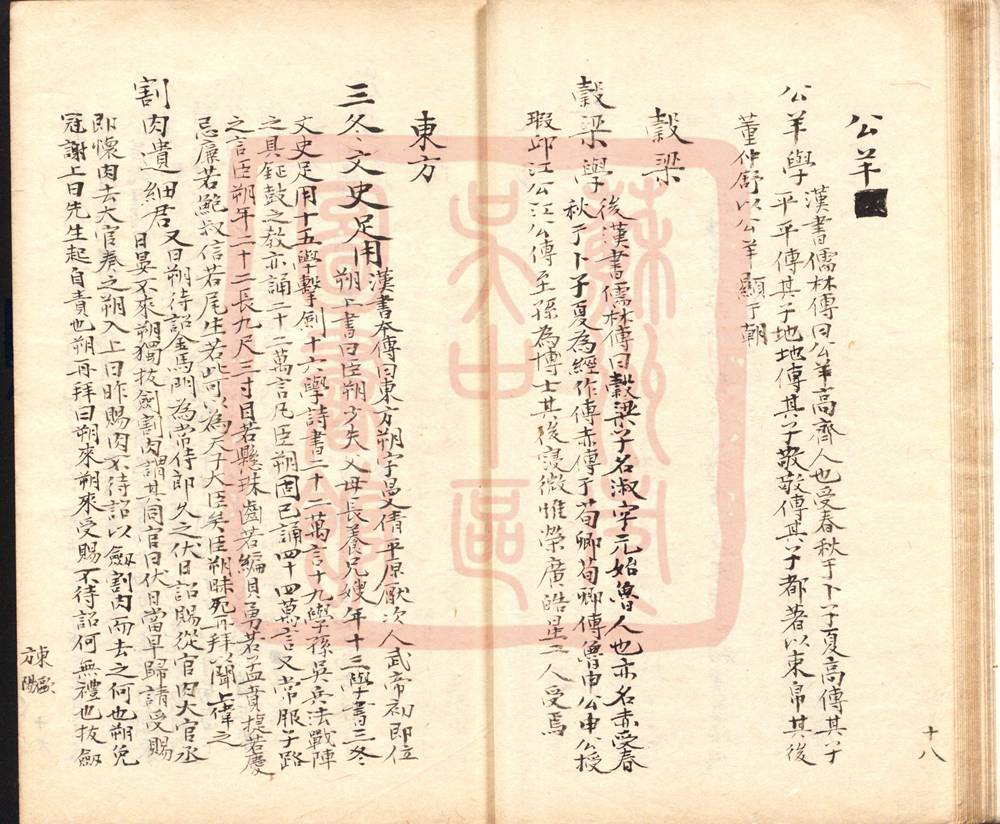 公羊
公羊學
漢書儒林傳曰公羊高齊人也受春秋于卜子夏高傳其子
平平傳其子地地傳其子敢敢傳其子都著以束帛其後
董仲舒以公羊顯于朝
穀梁
穀梁學
後漢書儒林傳曰穀梁子名淑字元始魯人也亦名赤受春
秋于卜子夏為經作傳赤傳于荀卿荀卿傳魯申公申公授
瑕邱江公江公傳至孫為博士其後寖微惟榮廣皓星二人受焉
東方
三冬文史足用
漢書本傳曰東方朔字曼倩平原厭次人武帝初即位
朔上書曰臣朔少失父母長養兄嫂年十三學書三冬
文史足用十五學擊劍十六學詩書二十二萬言十九學孫吳兵法戰陣
之具鉦鼓之教亦誦二十二萬言凡臣朔固已誦四十四萬言又常服子路
之言臣朔年二十二長九尺三寸目若懸珠齒若編貝勇若孟賁捷若慶
忌廉若鮑叔信若尾生若此可以為天子大臣矣臣朔昧死再拜以聞上偉之
割肉遺細君
又曰朔待詔金馬門為常侍郎久之伏日詔賜從官肉大官丞
日晏不來朔獨拔劍割肉謂其同官曰伏日當早歸請受賜
即懷肉去大官奏之朔入上曰昨賜肉不待詔以劔割肉而去之何也朔免
冠謝上曰先生起自責也朔再拜曰朔來朔來受賜不待詔何無禮也拔劔
東歐
方陽
十八
蘇州
吳中區
圖書館